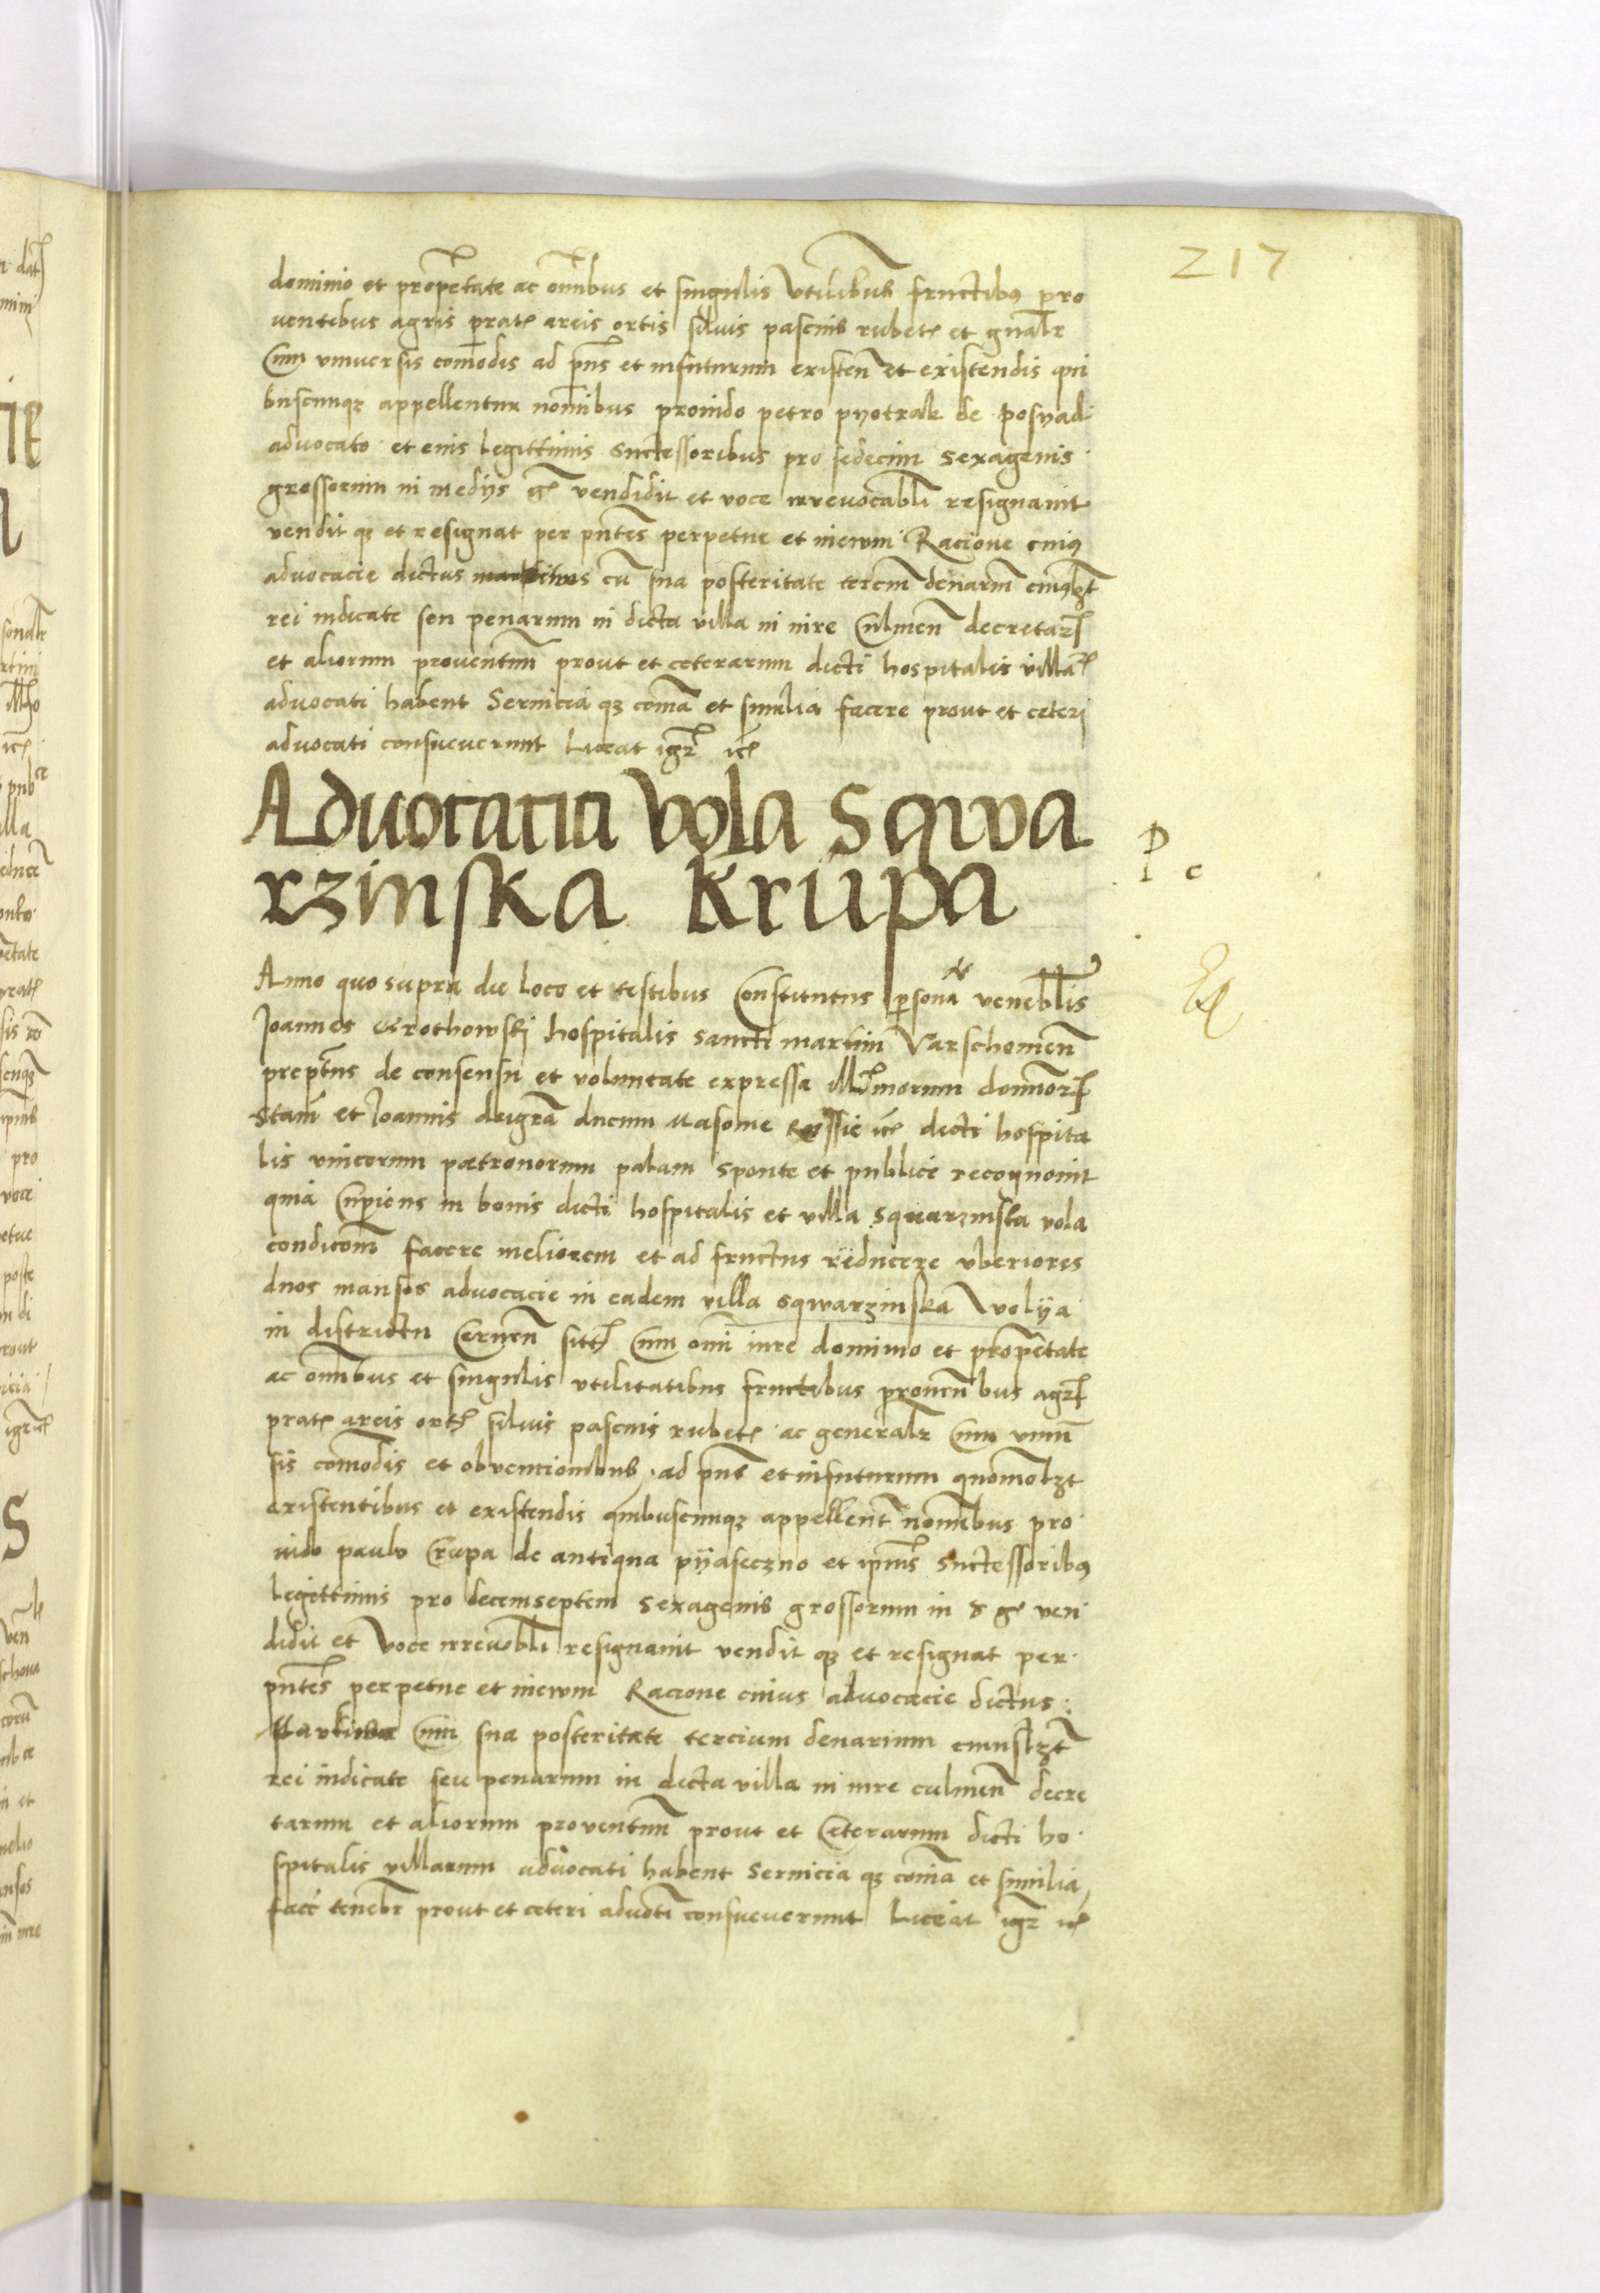 217
dominio et prop̃etate ac om̃ibus et singulis vtilibus fructibus pro
uentibus agris prat᷒ areis ortis siluis pascuis rubet᷒ et gnalr
Cum vniuersis com̃odis ad pñs et infuturum existen̄ et existendis qui
buscunqꝫ appellentur nom̃ibus prouido petro pyotrak de posyadi
aduocato et eius legittimis Suctessoribus pro sedecim Sexagenis
grossorum in medijs vendidit et voce irreuocabl̃i resignauit
vendit qꝫ et resignat per pñtes perpetue et in ewm Racione cuiꝰ
aduocacie dictus cũ sua posteritate terciũ denariũ cuiꝰlꝫt
rei iudicate seu penarum in dicta villa in iure Culmeñ decretaꝝ
et aliorum prouentuũ prout et ceterarum dicti hospitalis villaꝝ
aduocati habent Seruicia qꝫ com̃a et similia facere prout et ceteri
aduocati consueuerunt Liceat igr̃ ꝛc̃
Aduocatia Vola Sqwa
rzinska Krupa
P c
Anno quo supra die loco et testibus Constitutus ꝑsonaꝛ venebl̃is
Joannes Grothowski hospitalis sancti martini Varschouieñ
prept̃us de consensu et voluntate expressa Illmorum dom̃oꝝ
Stañ et Joannis deigrã ducum Masouie Russie ꝛc̃ dicti hospita
lis vnicorum patronorum palam sponte et publice recognouit
quia Cupiens in bonis dicti hospitalis et villa sqwarzinska vola
condicom̃ facere meliorem et ad fructus rëducere vberiores
duos mansos aduocacie in eadem villa sqwarzinska Wolÿa
in districtu Cerneñ sitt᷒ Cum om̃i iure dominio et prop̃etate
ac om̃ibus et singulis vtilitatibus fructibus proueñbus agꝝ
prat᷒ areis ort᷒ siluis pascuis rubet᷒ ac generalr Cum vniuer̃
sis com̃odis et obuencionibus ad pñs et infuturum quom̃olꝫt
existentibus et existendis quibuscunqꝫ appellent̃ nom̃ibus pro
uido paulo Crupa de antiqua pÿaseczno et ip̃ius Suctessoribꝰ
legittimis pro decemseptem Sexagenis grossorum in ven
didit et voce irreuobl̃i resignauit vendit qꝫ et resignat per
pñtes perpetue et in ewm Racione cuius aduocacie dictus
Cum sua posteritate tercium denarium cuiuslꝫt
rei iudicate seu penarum in dicta villa in iure culmeñ decre
tarum et aliorum prouentuũ prout et Ceterarum dicti ho
spitalis villarum aduocati habent Seruicia qꝫ com̃a et similia
face᷒ tenebr̃ prout et ceteri aduoti consueuerunt Liceat igr̃ ꝛc̃